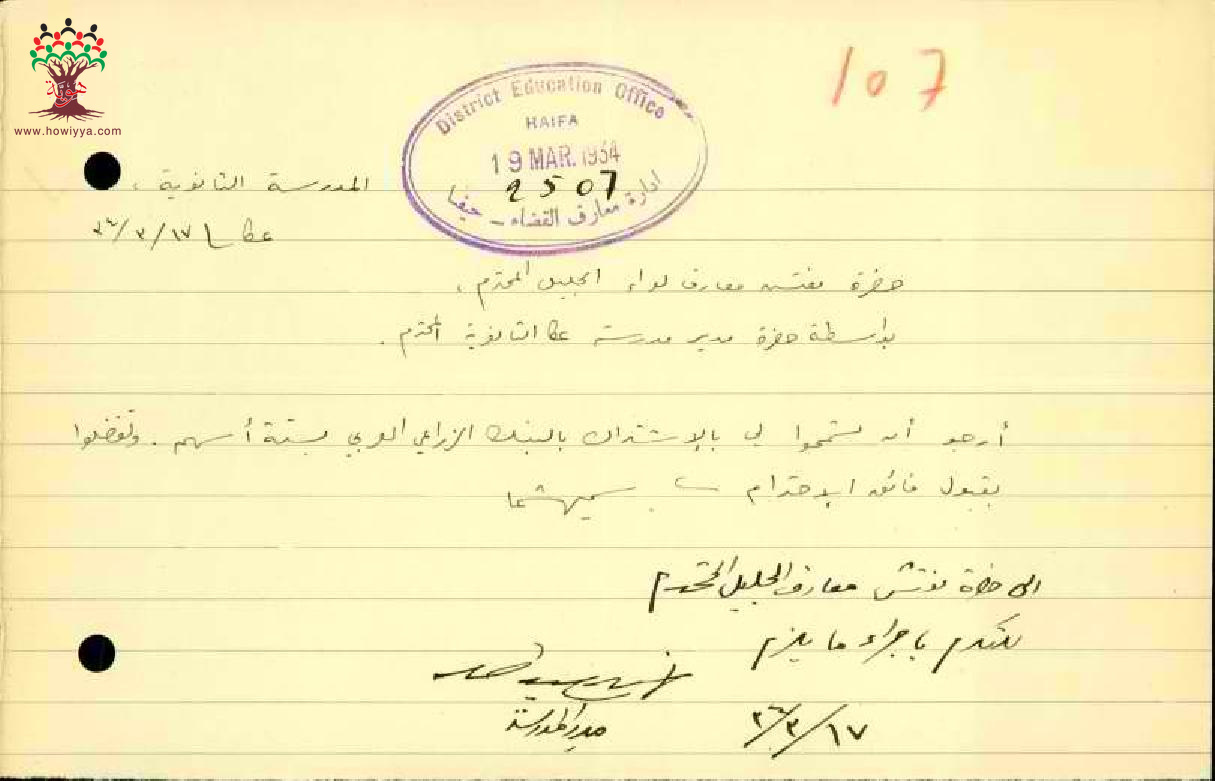 هوية
www.howiyya.com
107
District Education Office
HAIFA
19 MAR. 1934
2507
ادارة معارف القضاء - حيفا
المدرسة الثانوية،
عكا ١٧/٣/٣٤
حضرة مفتش معارف لواء الجليل المحترم،
بواسطة حضرة مدير مدرسة عكا الثانوية المحترم.
أرجو أن تسمحوا لي بالإشتراك بالبنك الزراعي العربي بستة أسهم. وتفضلوا
بقبول فائق الاحترام
الى حضرة مفتش معارف الجليل المحترم
للتكرم باجراء ما يلزم
مدير المدرسة
١٧/٣/٣٤